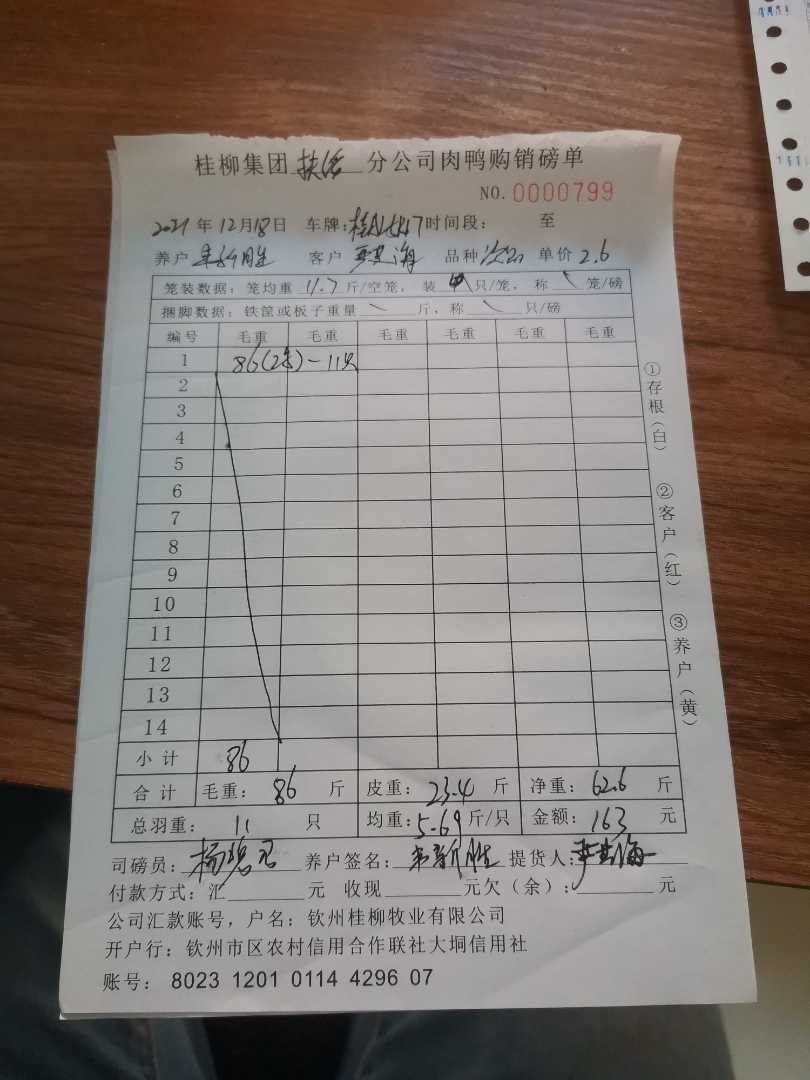 桂柳集团 扶绥 分公司肉鸭购销磅单
NO. 0000799
2021年12月18日 车牌: 时间段: 至
养户 胜 客户 海 品种 次品 单价 2.6
笼装数据:笼均重 11.7 斤/空笼,装 只/笼,称 \ 笼/磅
捆脚数据:铁筐或板子重量 \ 斤,称 \ 只/磅
编号 毛重 毛重 毛重 毛重 毛重 毛重
1 86(2笼)-11只
2
3
4
5
6
7
8
9
10
11
12
13
14
小计 86
合计 毛重: 86 斤 皮重: 23.4 斤 净重: 62.6 斤
总羽重: 11 只 均重: 5.69 斤/只 金额: 163 元
司磅员: 杨 养户签名: 胜 提货人: 海
付款方式:汇 元 收现 元欠(余): 元
公司汇款账号,户名:钦州桂柳牧业有限公司
开户行:钦州市区农村信用合作联社大垌信用社
账号: 8023 1201 0114 4296 07
①存根(白)
②客户(红)
③养户(黄)